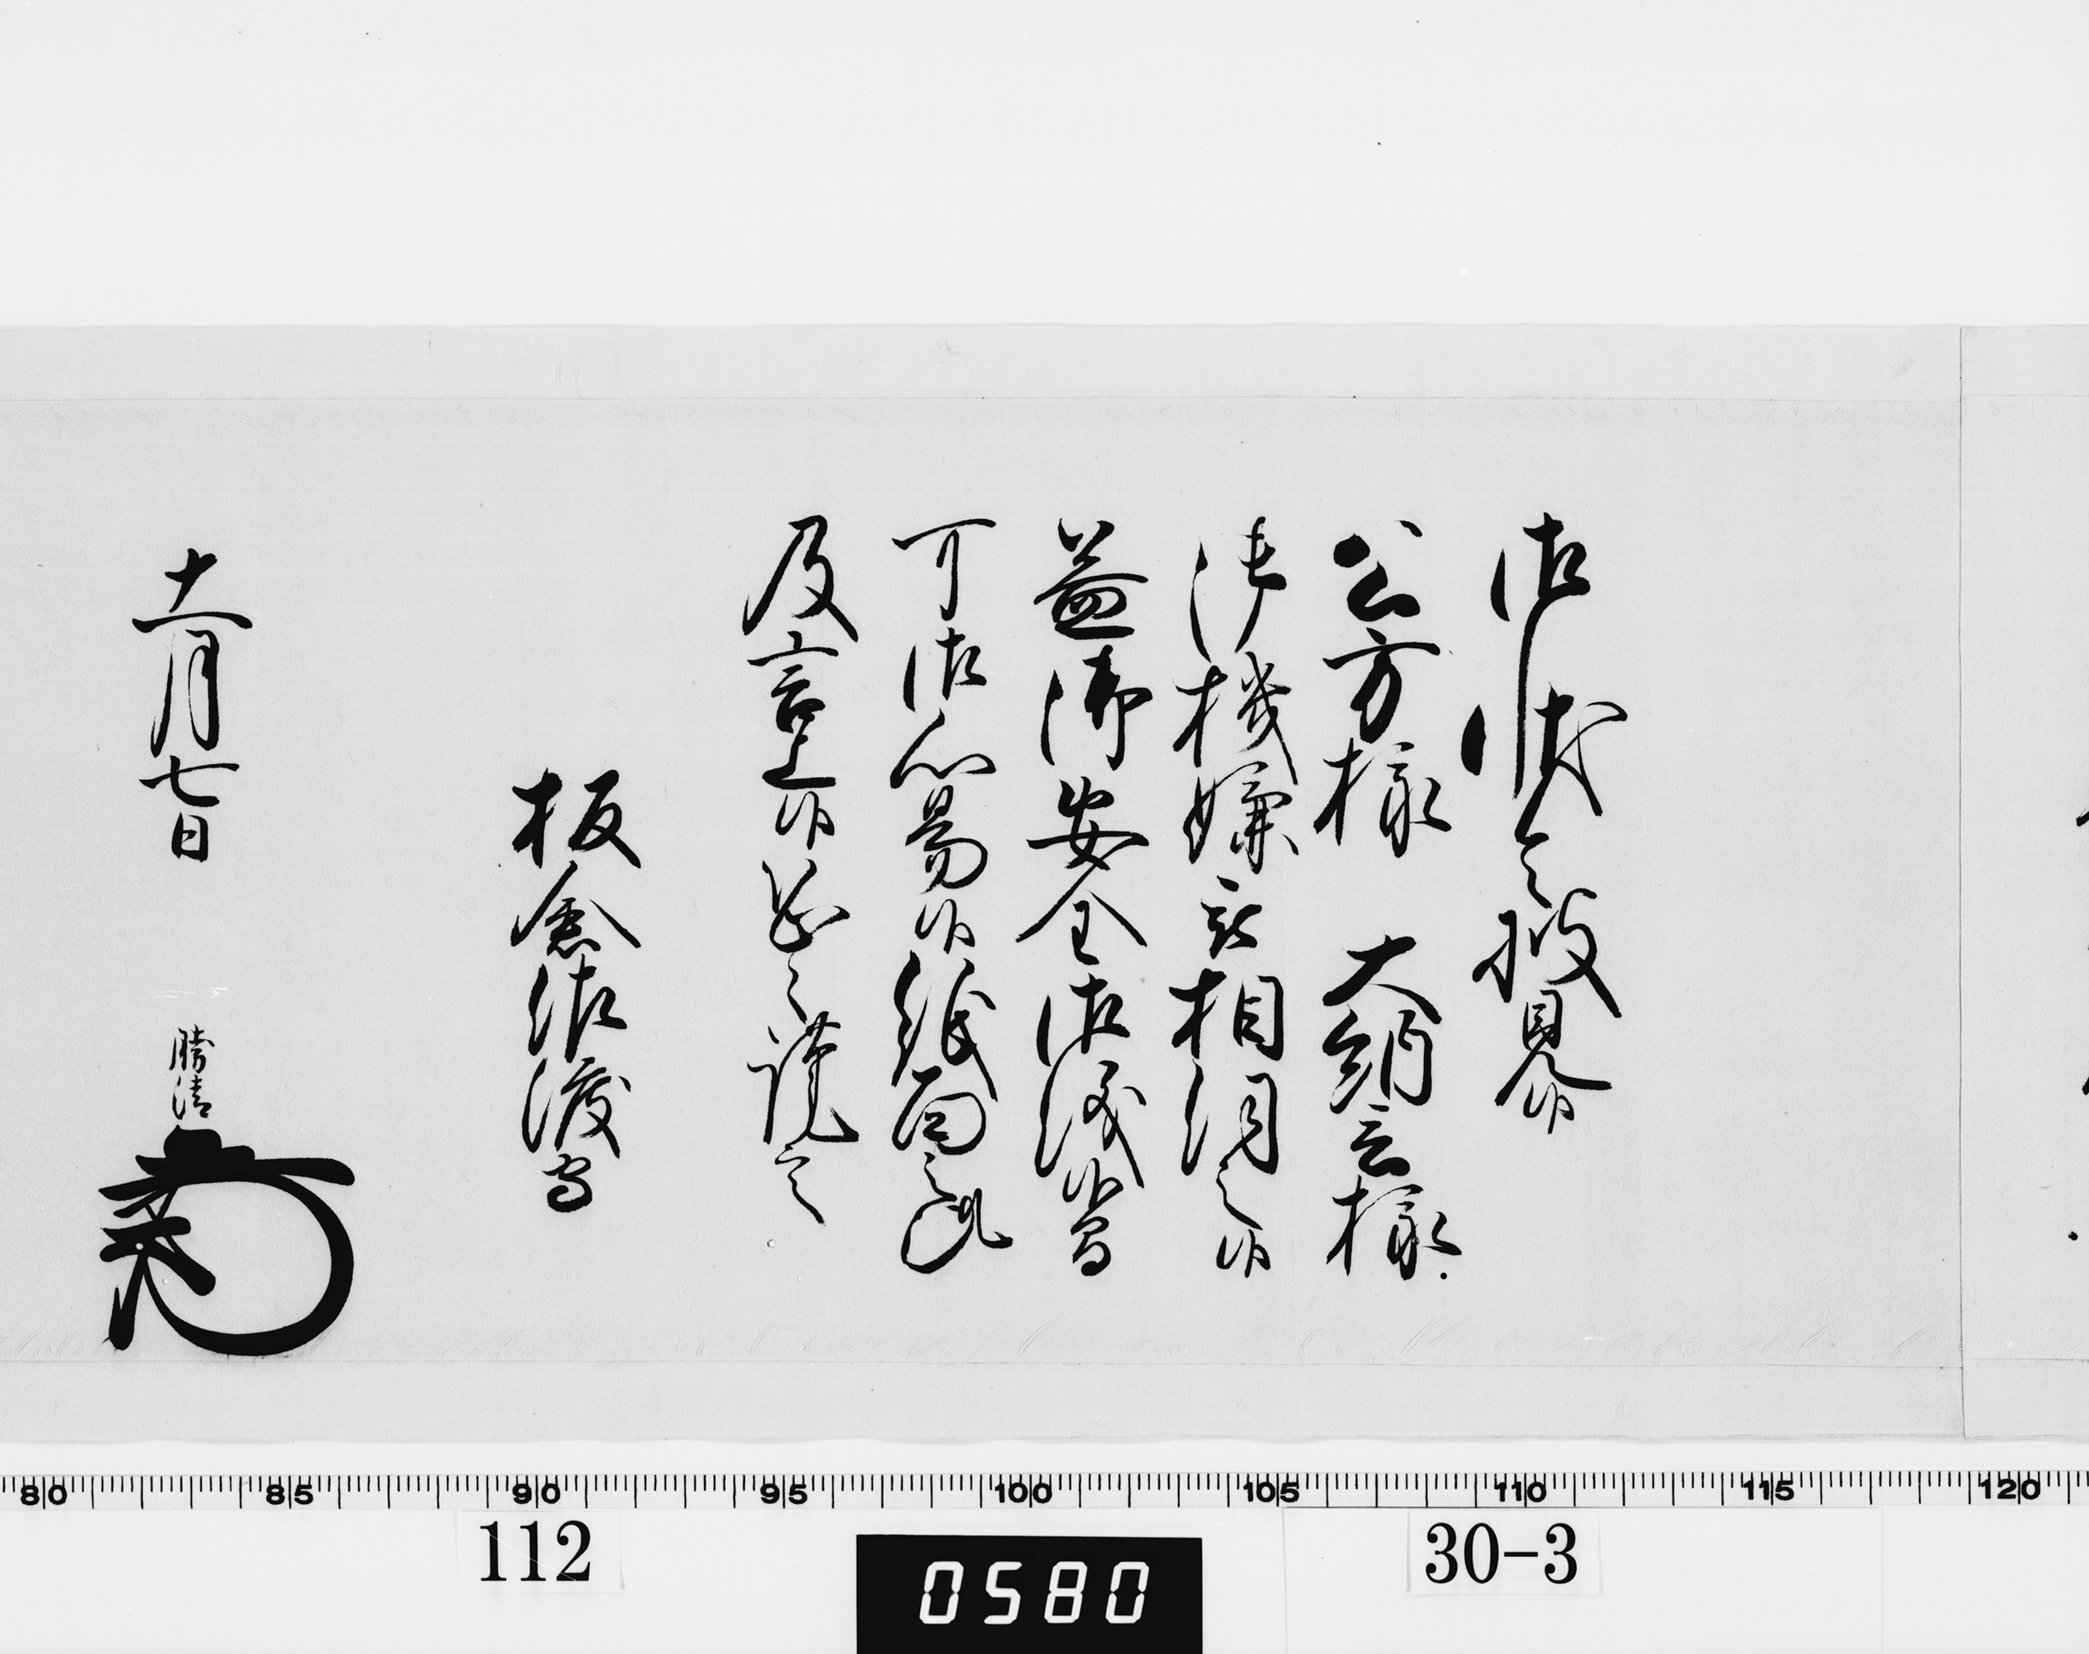 御状令披見候
公方様 大納言様
御機嫌被相伺之候
益御安全御儀候間
可御心易候紙面之趣
及言上候恐々謹言
板倉佐渡守
十一月七日
勝清
80 85 90 95 100 105 110 115 120
112
0580
30-3